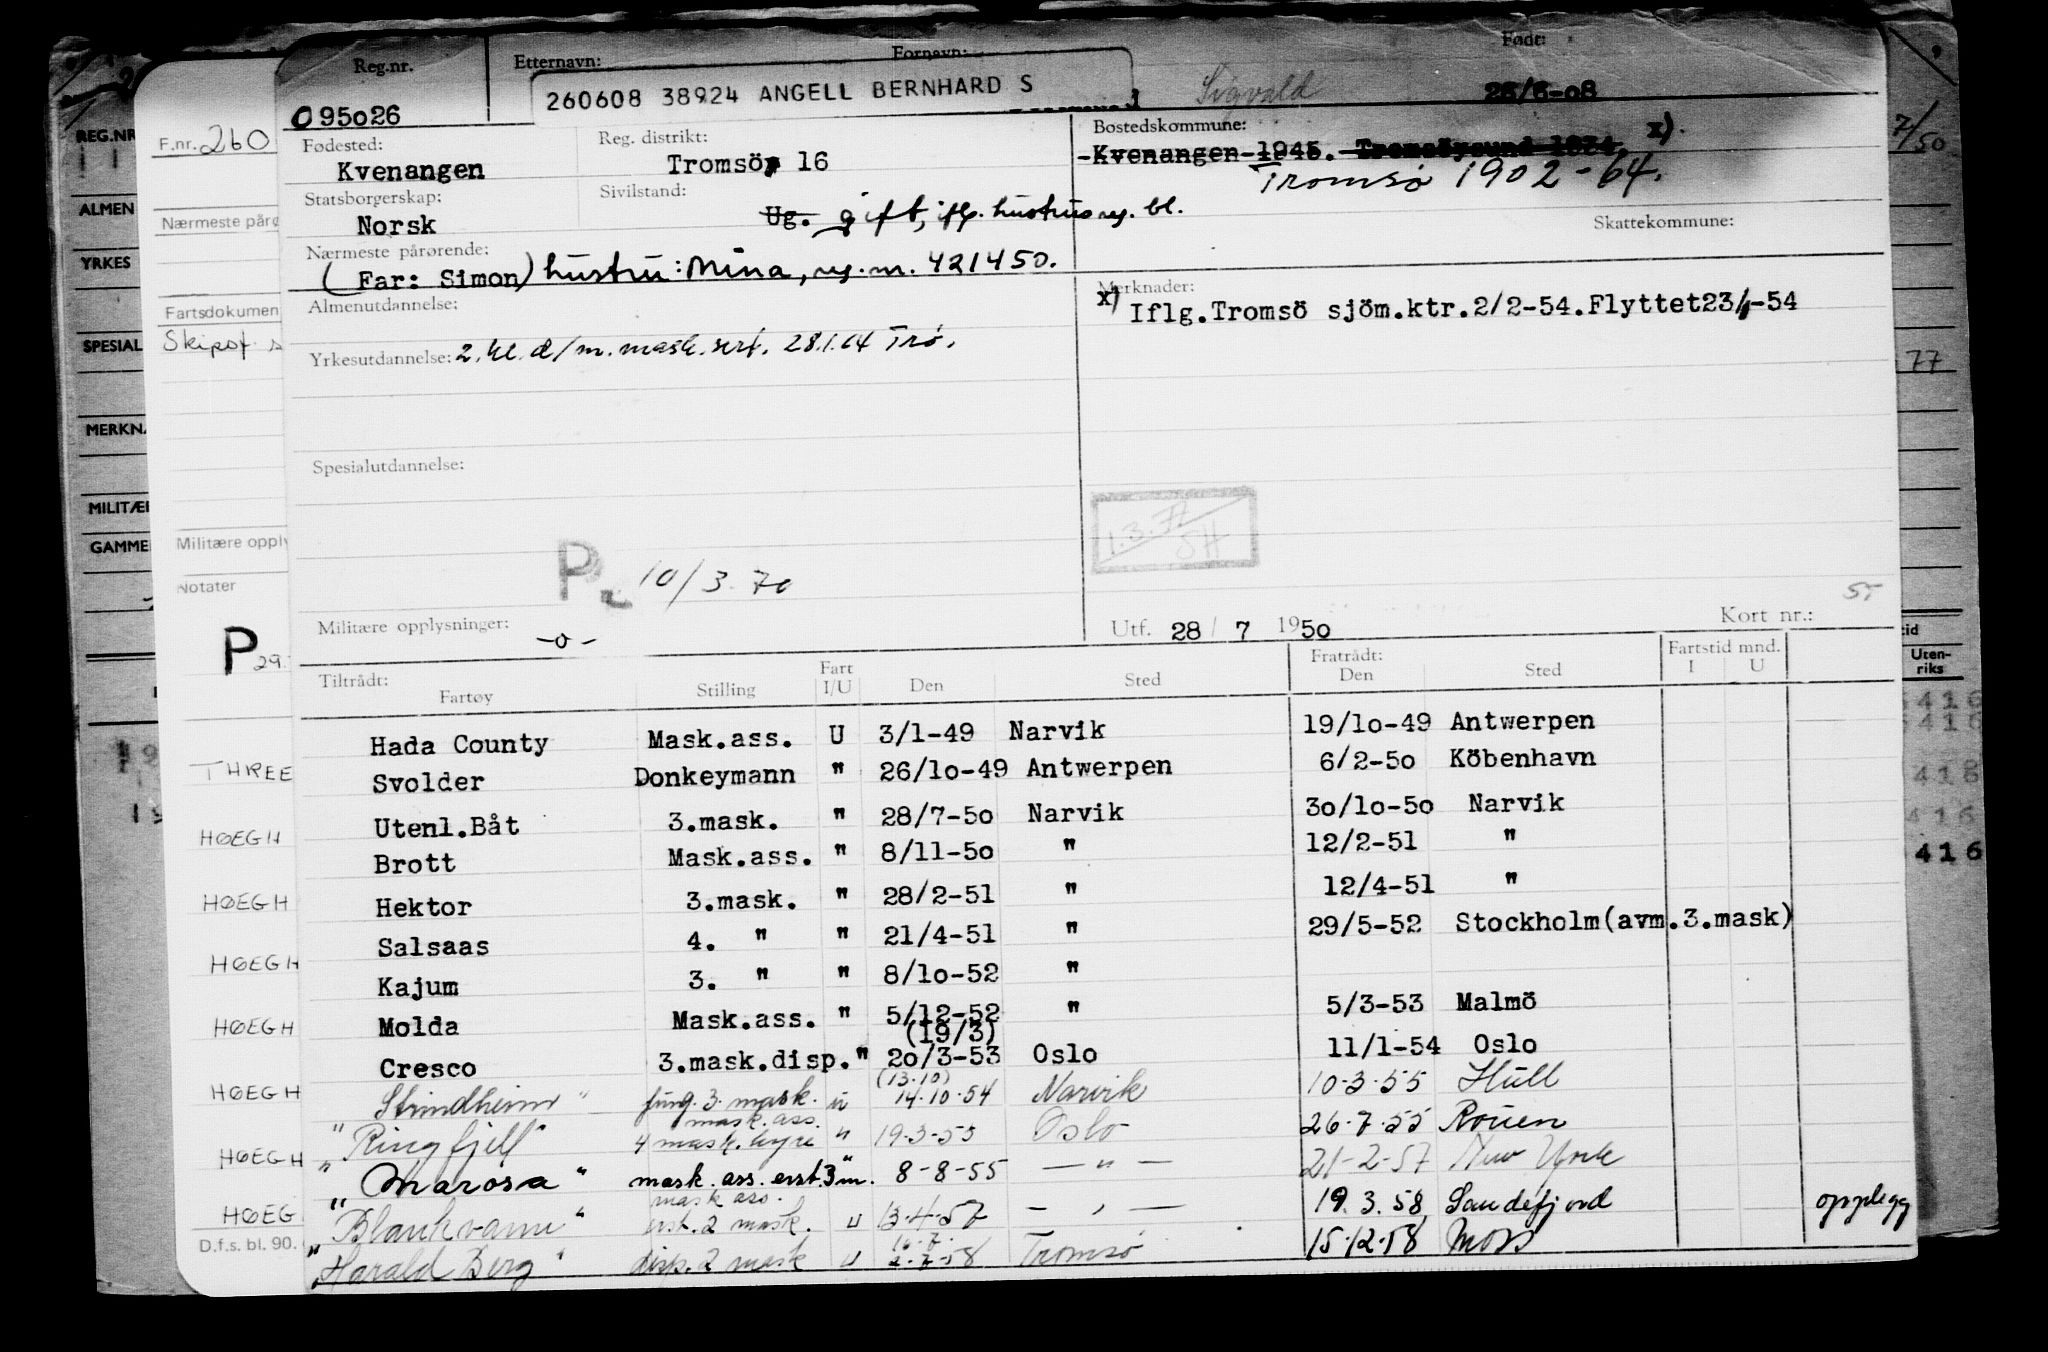 Reg.nr. Etternavn: Fornavn: Født:
095026 260608 38924 ANGELL BERNHARD S Sigvald 26/6-08
Fødested: Reg. distrikt: Bostedskommune:
Kvenangen Tromsö, 16 -Kvenangen-1945. Tromsöysund 1934, x)
Tromsø 1902-64.
Statsborgerskap: Sivilstand: Skattekommune:
Norsk Ug. gift, iflg. hustrus reg. bl.
Nærmeste pårørende:
(Far: Simon) hustru: Mina, reg. nr. 421450.
Almenutdannelse: Merknader:
x) Iflg.Tromsö sjöm.ktr.2/2-54.Flyttet23/1-54
Yrkesutdannelse: 2. kl. d/m. mask. sert. 28.1.64 Trø.
Spesialutdannelse:
1.3.77
SH
P 10/3.70
Militære opplysninger: -o- Utf. 28/7 1950 Kort nr.:
Tiltrådt: Fratrådt: Fartstid mnd.
Fartøy Stilling Fart I/U Den Sted Den Sted I U
Hada County Mask.ass. U 3/1-49 Narvik 19/10-49 Antwerpen
Svolder Donkeymann " 26/10-49 Antwerpen 6/2-50 Köbenhavn
Utenl.Båt 3.mask. " 28/7-50 Narvik 30/10-50 Narvik
Brott Mask.ass. " 8/11-50 " 12/2-51 "
Hektor 3.mask. " 28/2-51 " 12/4-51 "
Salsaas 4. " " 21/4-51 " 29/5-52 Stockholm(avm.3.mask)
Kajum 3. " " 8/10-52 "
Molda Mask.ass. " 5/12-52 " 5/3-53 Malmö
(19/3)
Cresco 3.mask.disp." 20/3-53 Oslo 11/1-54 Oslo
(13.10)
Strindheim " fung. 3. mask. u 14.10.54 Narvik 10.3.55 Hull
mask. ass.
"Ringfjell" 4 mask. hyre " 19.3.55 Oslo 26.7.55 Rouen
"Marosa" mask. ass. erst. 3 m. " 8-8-55 — " — 21-2-57 New York
mask ass.
"Blankvann" erst. 2 mask. u 13.4.57 — , — 19.3.58 Sandefjord opplegg
16.7.
"Harald Berg" disp. 2 mask u 2.7.58 Tromsø 15.12.58 Moss
F.nr. 260
Nærmeste pårø
Fartsdokumen
Skipsf. s
Militære opply
Notater
P 29.
THREE
HØEGH
HØEGH
HØEGH
HØEGH
HØEGH
HØEGH
HØEG
D.f.s. bl. 90.
REG.NR
ALMEN
YRKES
SPESIAL
MERKNA
MILITÆR
GAMME
7/50
77
Uten-
riks
416
416
418
416
416